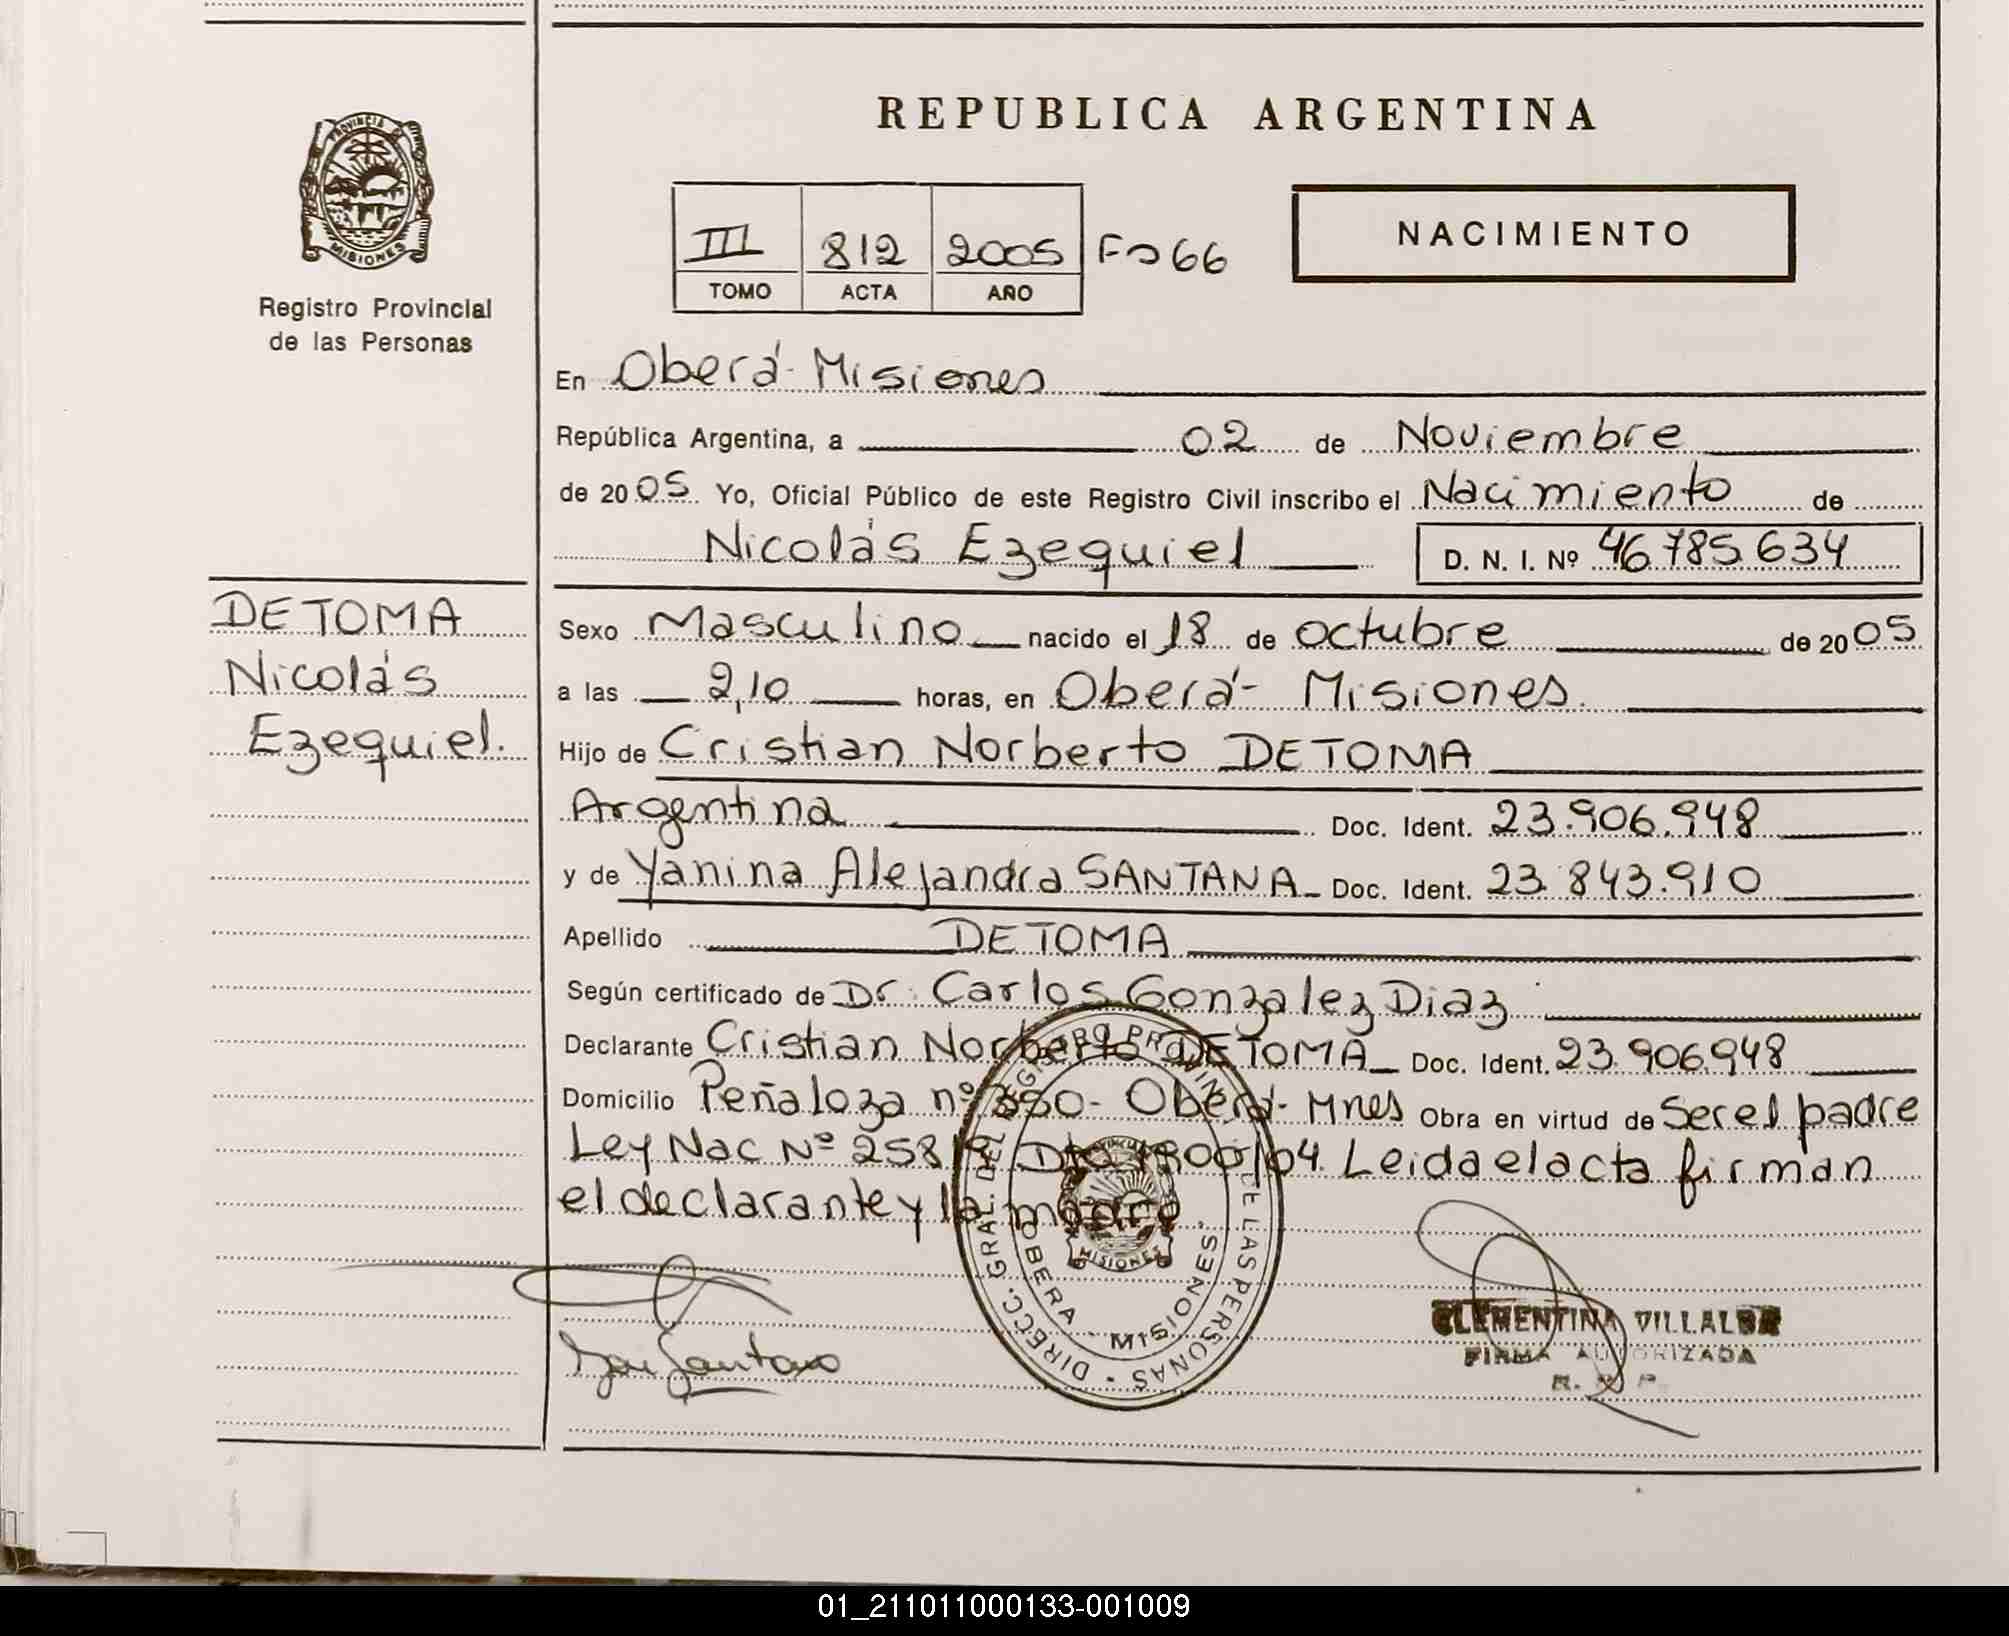 REPUBLICA ARGENTINA
PROVINCIA DE
MISIONES
Registro Provincial
de las Personas
III 812 2005 Fo 66
TOMO ACTA AÑO
NACIMIENTO
En Oberá - Misiones
República Argentina, a 02 de Noviembre
de 2005 Yo, Oficial Público de este Registro Civil inscribo el Nacimiento de
Nicolás Ezequiel D. N. I. Nº 46785634
DETOMA
Nicolás
Ezequiel.
Sexo Masculino nacido el 18 de octubre de 2005
a las 2,10 horas, en Oberá - Misiones.
Hijo de Cristian Norberto DETOMA
Argentina Doc. Ident. 23.906.948
y de Yanina Alejandra SANTANA Doc. Ident. 23.843.910
Apellido DETOMA
Según certificado de Dr. Carlos Gonzalez Diaz
Declarante Cristian Norberto DETOMA Doc. Ident. 23.906.948
Domicilio Peñaloza nº 350 - Oberá - Mnes Obra en virtud de Ser el padre
Ley Nac Nº 25819 Dto 1800/04. Leida el acta firman
el declarante y la madre
DIREC. GRAL. DEL REGISTRO PROVINCIAL DE LAS PERSONAS
MISIONES
OBERA - MISIONES
CLEMENTINA VILLALBA
FIRMA AUTORIZADA
R. P.
01_211011000133-001009